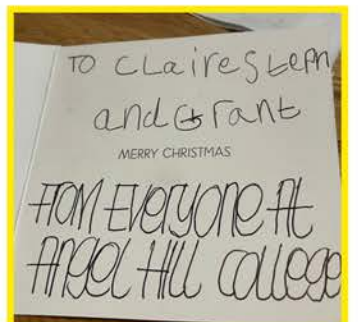 TO CLaire Steph
and Grant
MERRY CHRISTMAS
FrOM EVeryONe At
ANgel HILL COLLege